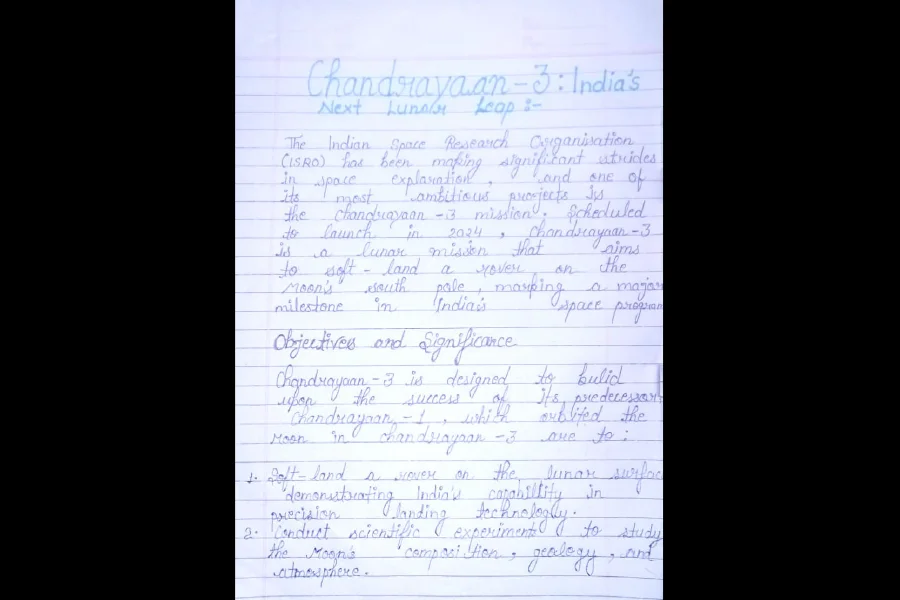 Chandrayaan-3: India's
Next Lunar Leap :-
The Indian Space Research Organisation
(ISRO) has been making significant strides
in space explaration, and one of
its most ambitious projects is
the chandrayaan-3 mission. Scheduled
to launch in 2024, Chandrayaan-3
is a lunar mission that aims
to soft-land a rover on the
Moon's south pole, marking a major
milestone in India's space program
Objectives and Significance
Chandrayaan-3 is designed to bulid
upon the success of its predecessor
Chandrayaan-1, which orbited the
moon in chandrayaan-3 are to:
1. Soft-land a rover on the lunar surfac
demonstrating India's capabiltity in
precision landing technology.
2. Conduct scientific experiments to study
the Moon's composition, geology, and
atmosphere.